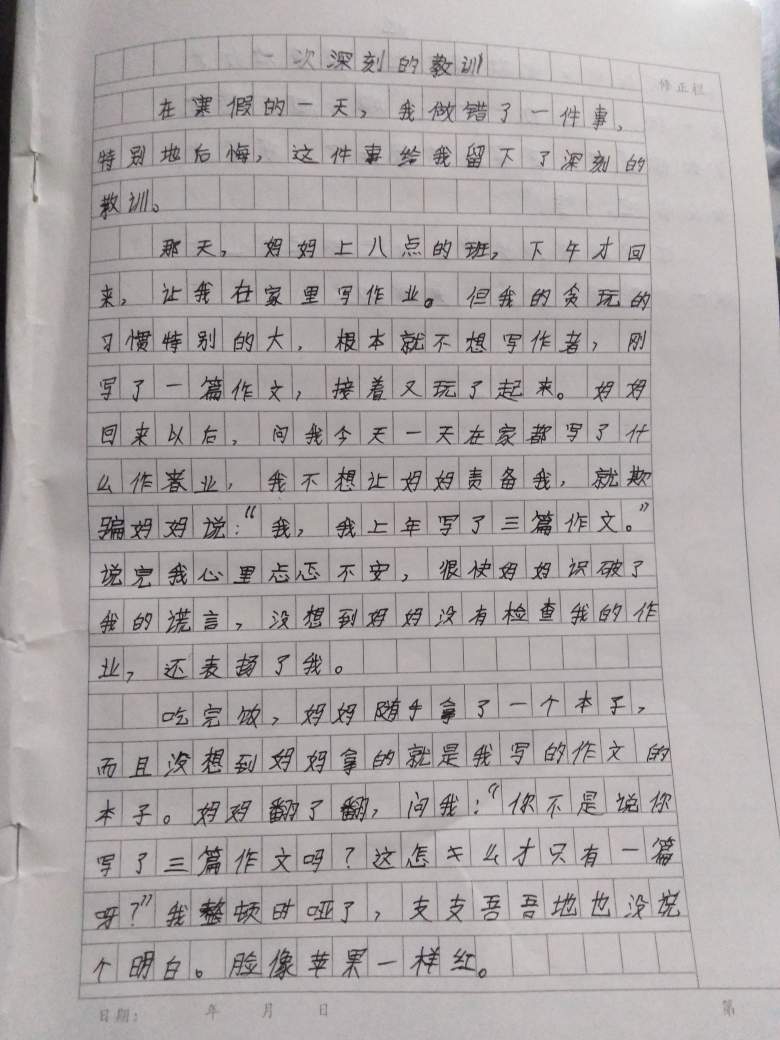 一次深刻的教训
修正栏
在寒假的一天，我做错了一件事，
特别地后悔，这件事给我留下了深刻的
教训。
那天，妈妈上八点的班，下午才回
来，让我在家里写作业。但我的贪玩的
习惯特别的大，根本就不想写作者，刚
写了一篇作文，接着又玩了起来。妈妈
回来以后，问我今天一天在家都写了什
么作业，我不想让妈妈责备我，就欺
骗妈妈说：“我，我上年写了三篇作文。”
说完我心里忐忑不安，很快妈妈识破了
我的谎言，没想到妈妈没有检查我的作
业，还表扬了我。
吃完饭，妈妈随手拿了一个本子，
而且没想到妈妈拿的就是我写的作文的
本子。妈妈翻了翻，问我：“你不是说你
写了三篇作文吗？这怎么才只有一篇
呀？”我整顿时哑了，支支吾吾地也没说
个明白。脸像苹果一样红。
日期： 年 月 日 第